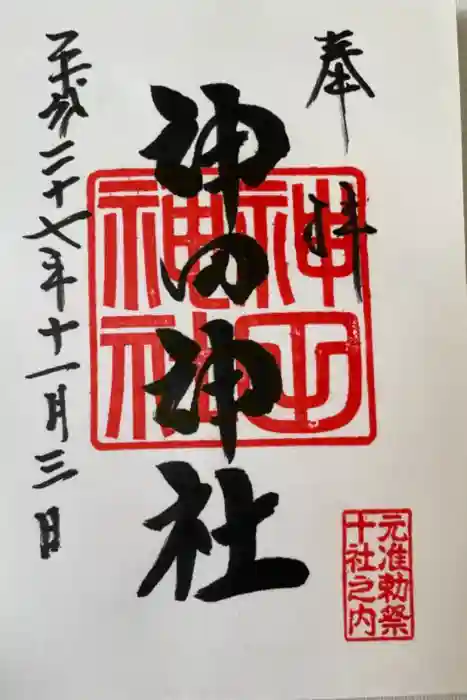 奉拝
神田神社
平成二十七年十一月三日
神田
神社
元准勅祭
十社之内